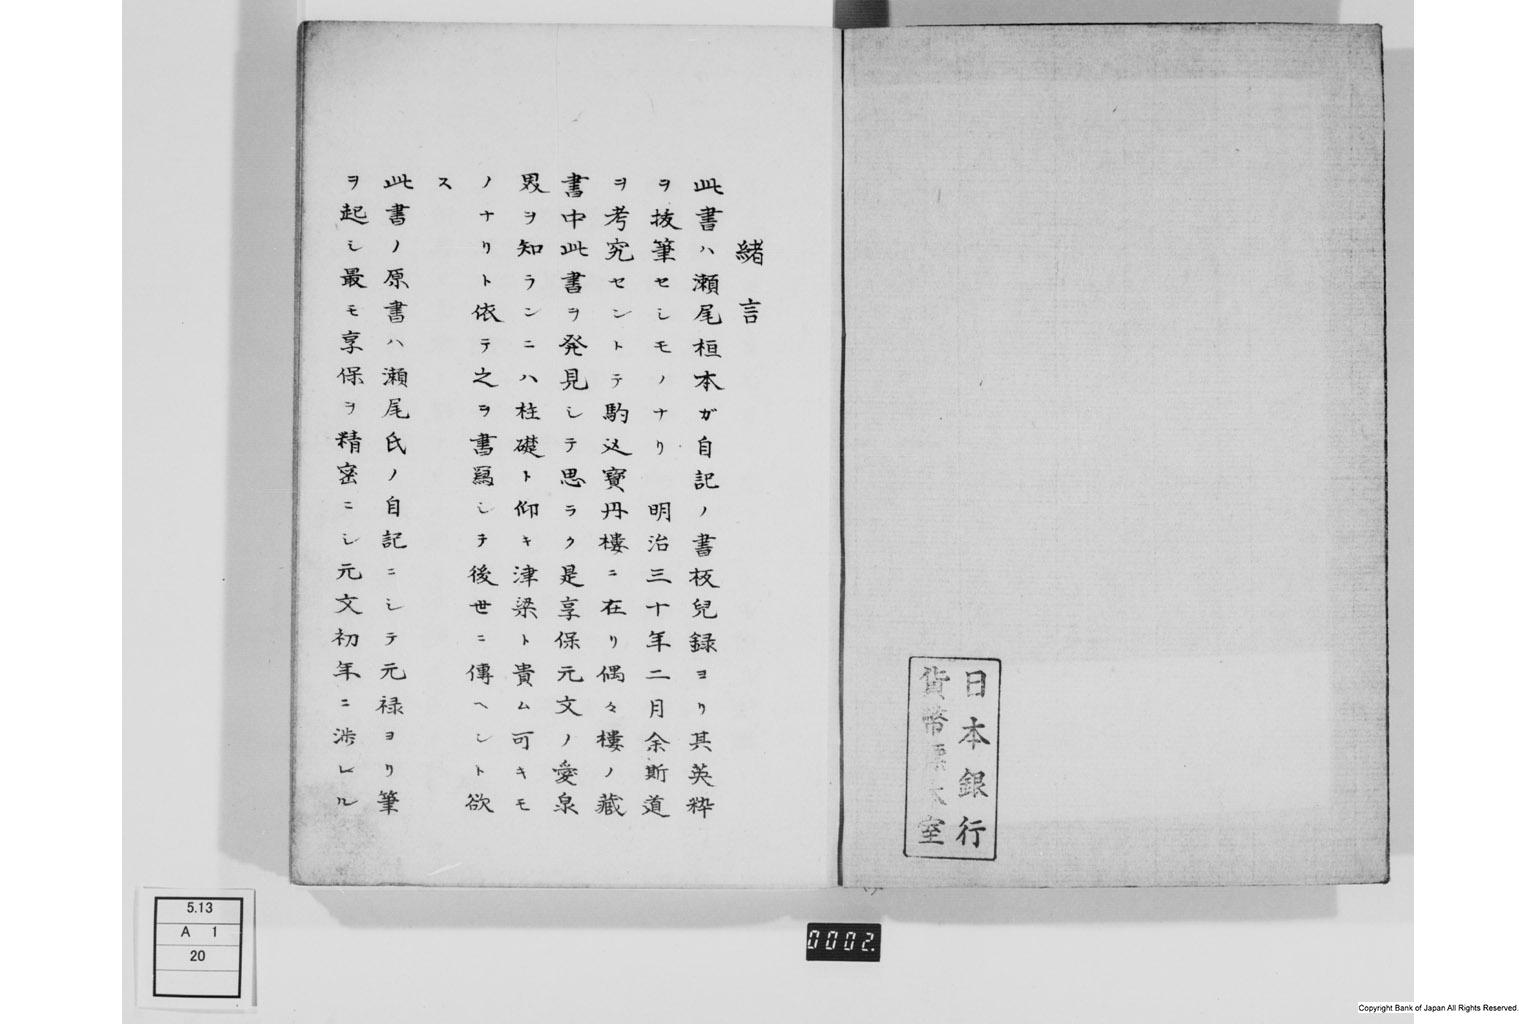 日本銀行
貨幣標本室
緒言
此書ハ瀬尾桓本ガ自記ノ書板児録ヨリ其英粋
ヲ抜筆セシモノナリ 明治三十年二月余斯道
ヲ考究セントテ駒込寳丹樓ニ在リ偶々樓ノ藏
書中此書ヲ発見シテ思ラク是享保元文ノ愛泉
界ヲ知ランニハ柱礎ト仰キ津梁ト貴ム可キモ
ノナリト依テ之ヲ書寫シテ後世ニ傳ヘント欲
ス
此書ノ原書ハ瀬尾氏ノ自記ニシテ元禄ヨリ筆
ヲ起シ最モ享保ヲ精密ニシ元文初年ニ渉レル
5.13
A 1
20
0002.
Copyright Bank of Japan All Rights Reserved.